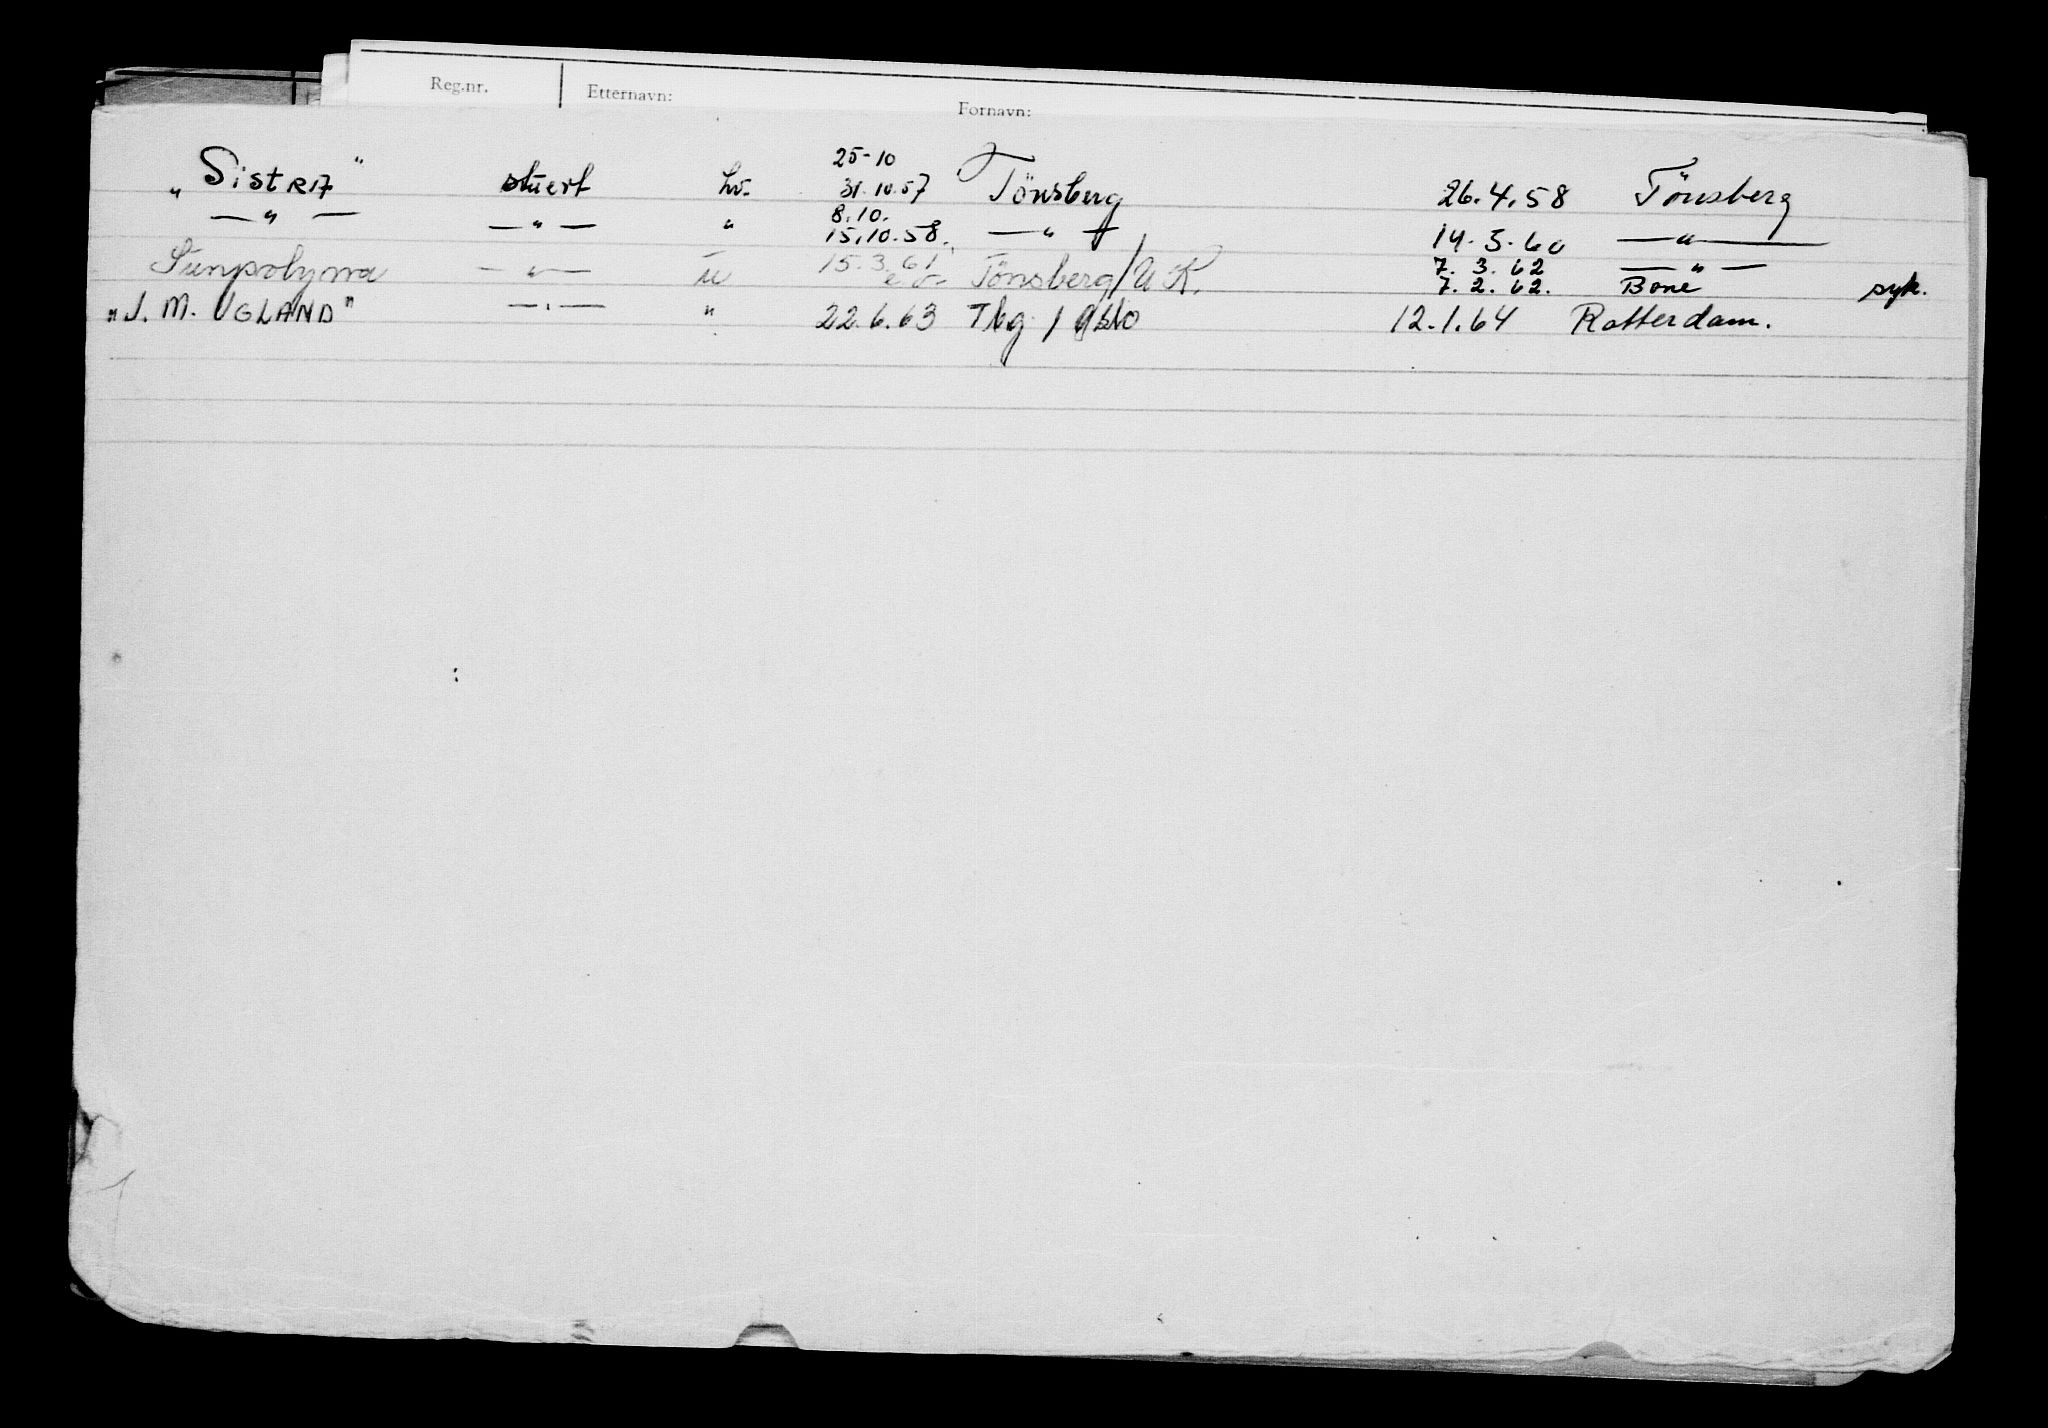 Reg.nr. Etternavn: Fornavn:
25-10
„Sistra" stuert hv. 31.10.57 Tönsberg 26.4.58 Tönsberg
8.10.
— " — — " — " 15.10.58. — " — 14.5.60 — " —
15.3.61 7.3.62 — " —
Sunpolyna — " — Tönsberg/U.K. 7.2.62. Bone syk.
„J. M. UGLAND" — " — " 22.6.63 Tbg / Oslo 12.1.64 Rotterdam.